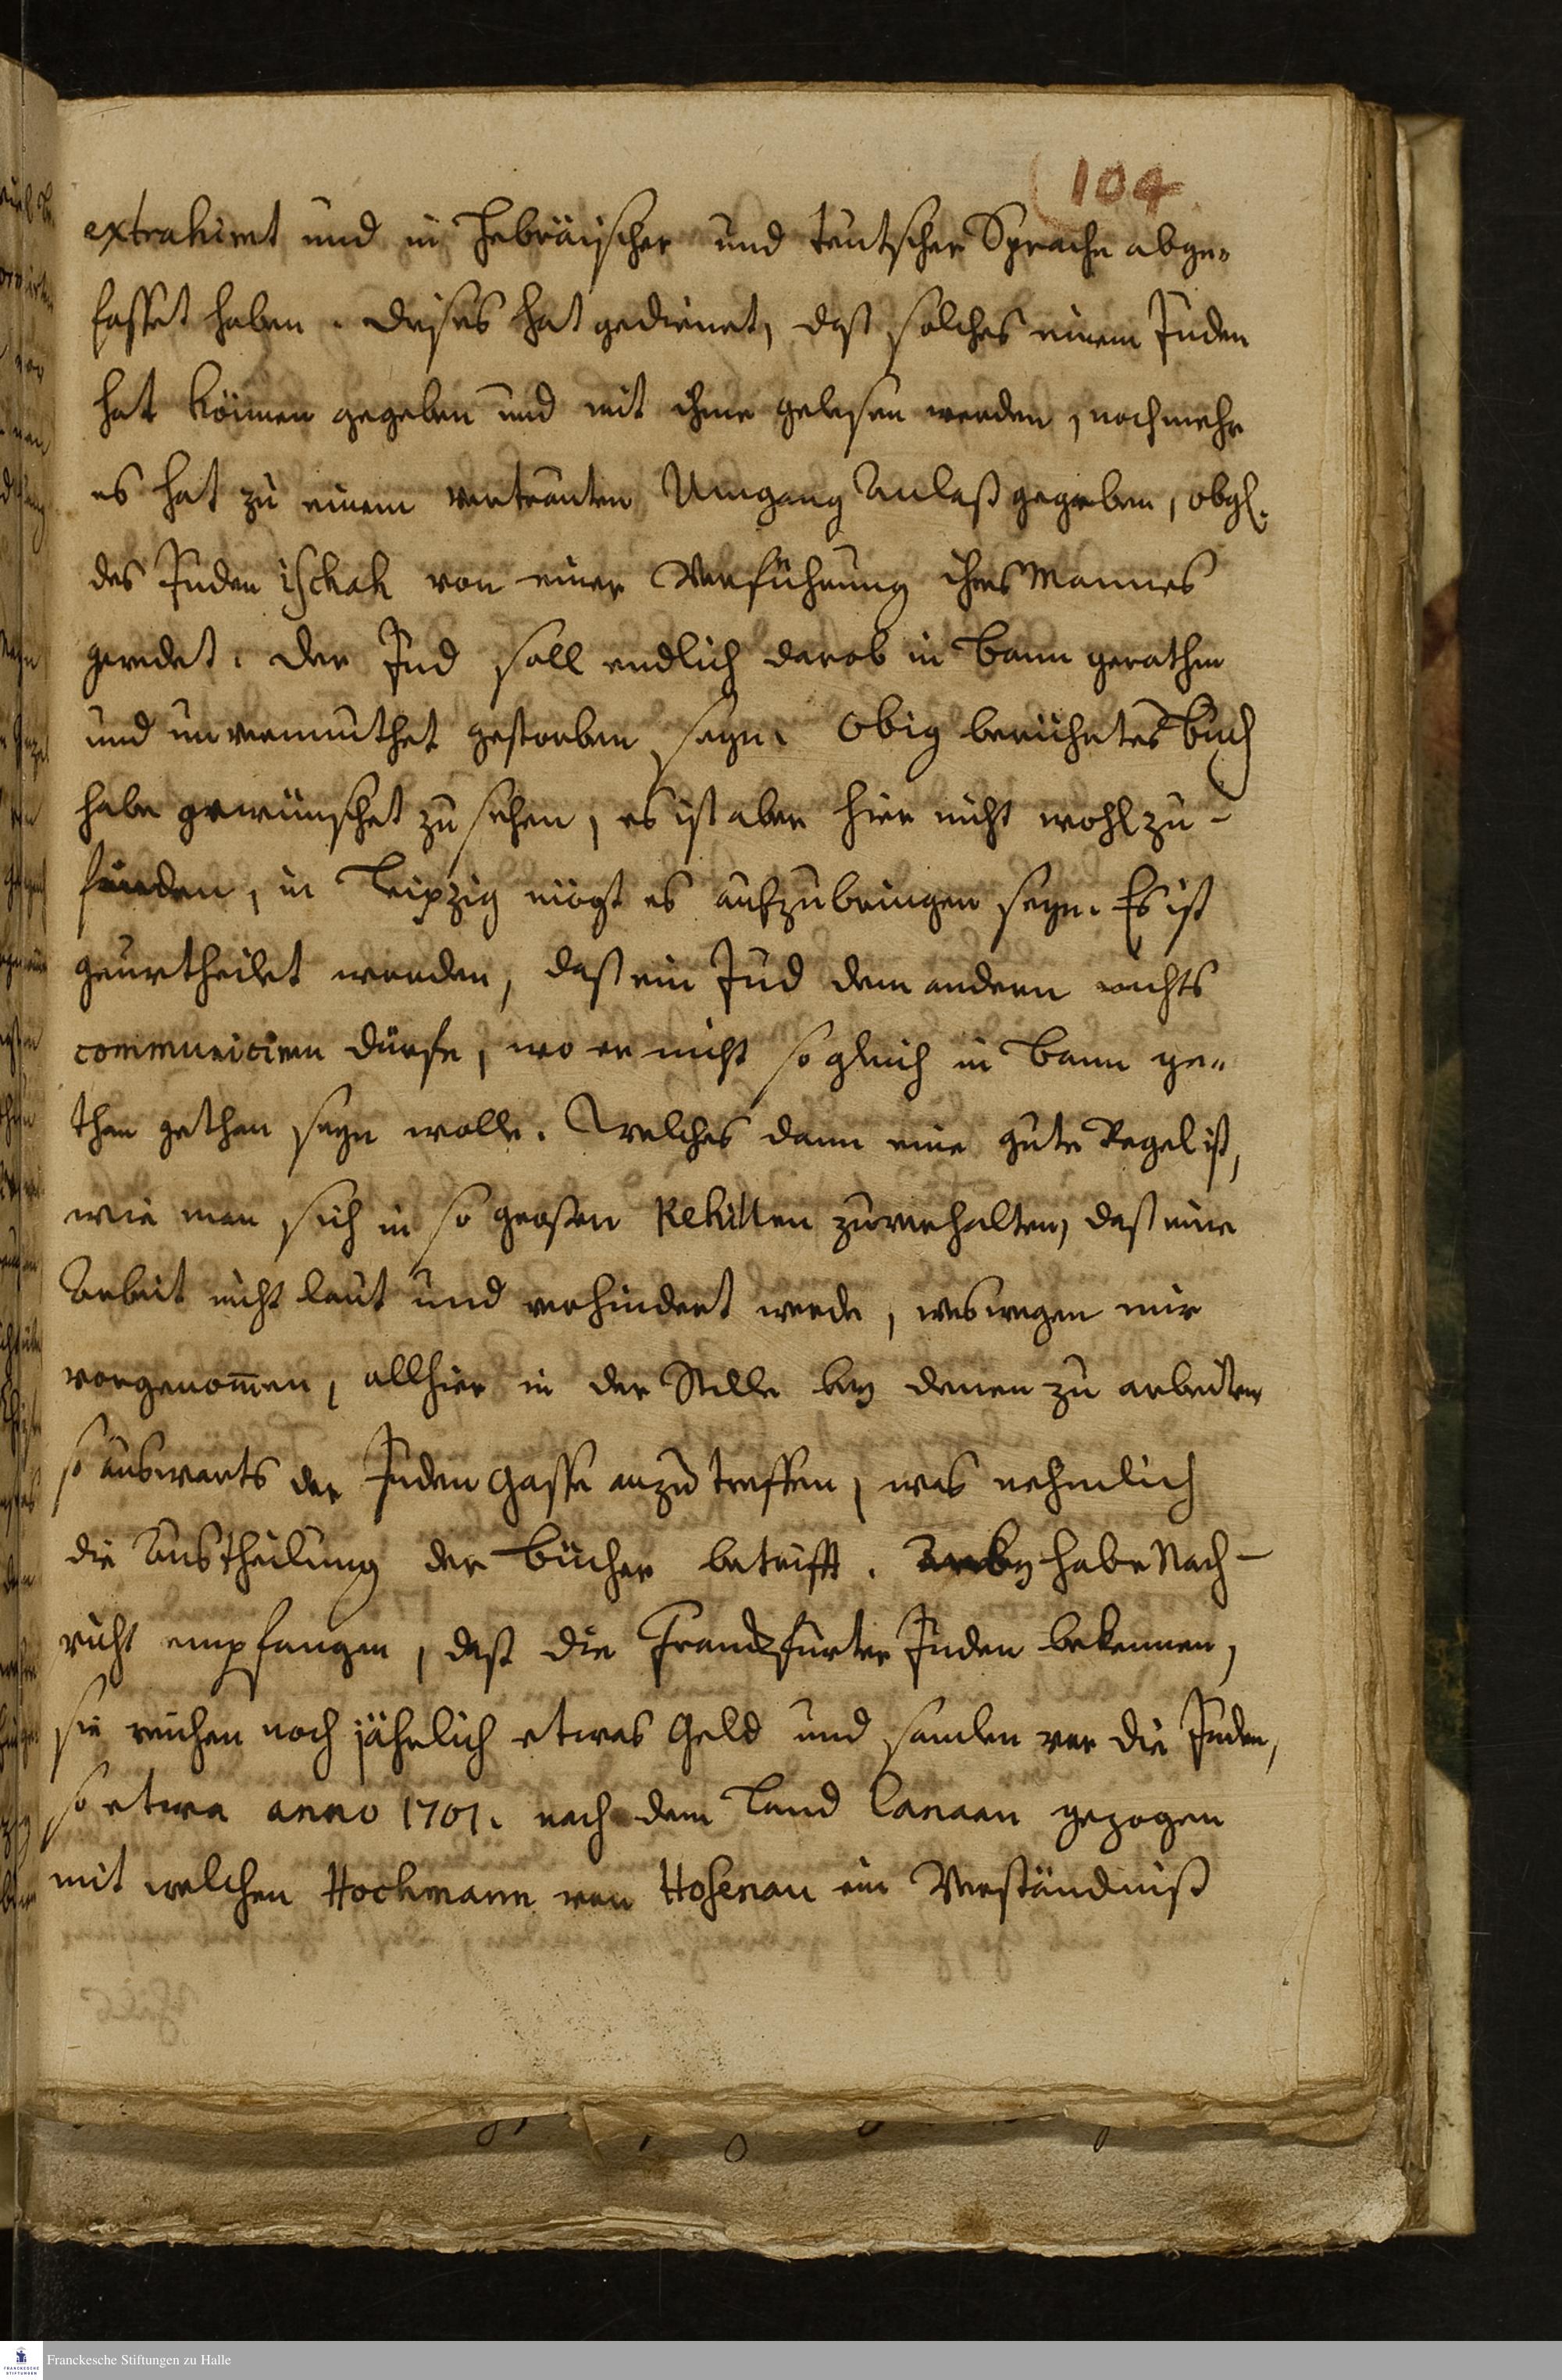 104
extrahirt und in Hebräischer und teutscher Sprache abge-
fasset haben. dieses hat gedienet, daß solches einem Juden
hat können gegeben und mit ihme gelesen werden, noch mehr
es hat zu einem vertrauten Umgang Anlaß gegeben, obgl.
des Juden ischah von einer Verführung ihres Mannes
geredet. der Jud soll endlich darob in Bann gerathen
und unvermuthet gestorben seyn. Obig berührtes Buch
habe gewünschet zu sehen, es ist aber hier nicht wohl zu-
finden, in Leipzig mögt es aufzubringen seyn. Es ist
geurtheilet worden, daß ein Jud dem andern nichts
communiciren dürfe, wo er nicht so gleich in Bann ge-
than gethan seyn wolle. Welches dann eine gute Regel ist,
wie man sich in so grosen Kehillen zuverhalten, daß eine
Arbeit nicht laut und verhindert werde, weswegen mir
vorgenom̄en, allhier in der Stille bey denen zu arbeiten
so auswarts der Juden Gasse anzutreffen, was nehmlich
die Austheilung der Bücher betrifft. habe Nach-
richt empfangen, daß die Franckfurter Juden bekennen,
sie reichen noch jährlich etwas Geld und samlen vor die Juden,
so etwa anno 1701. nach dem Land Canaan gezogen
mit welchen Hochmann von Hohenau ein Verständniß
Franckesche Stiftungen zu Halle
FRANCKESCHE
STIFTUNGEN